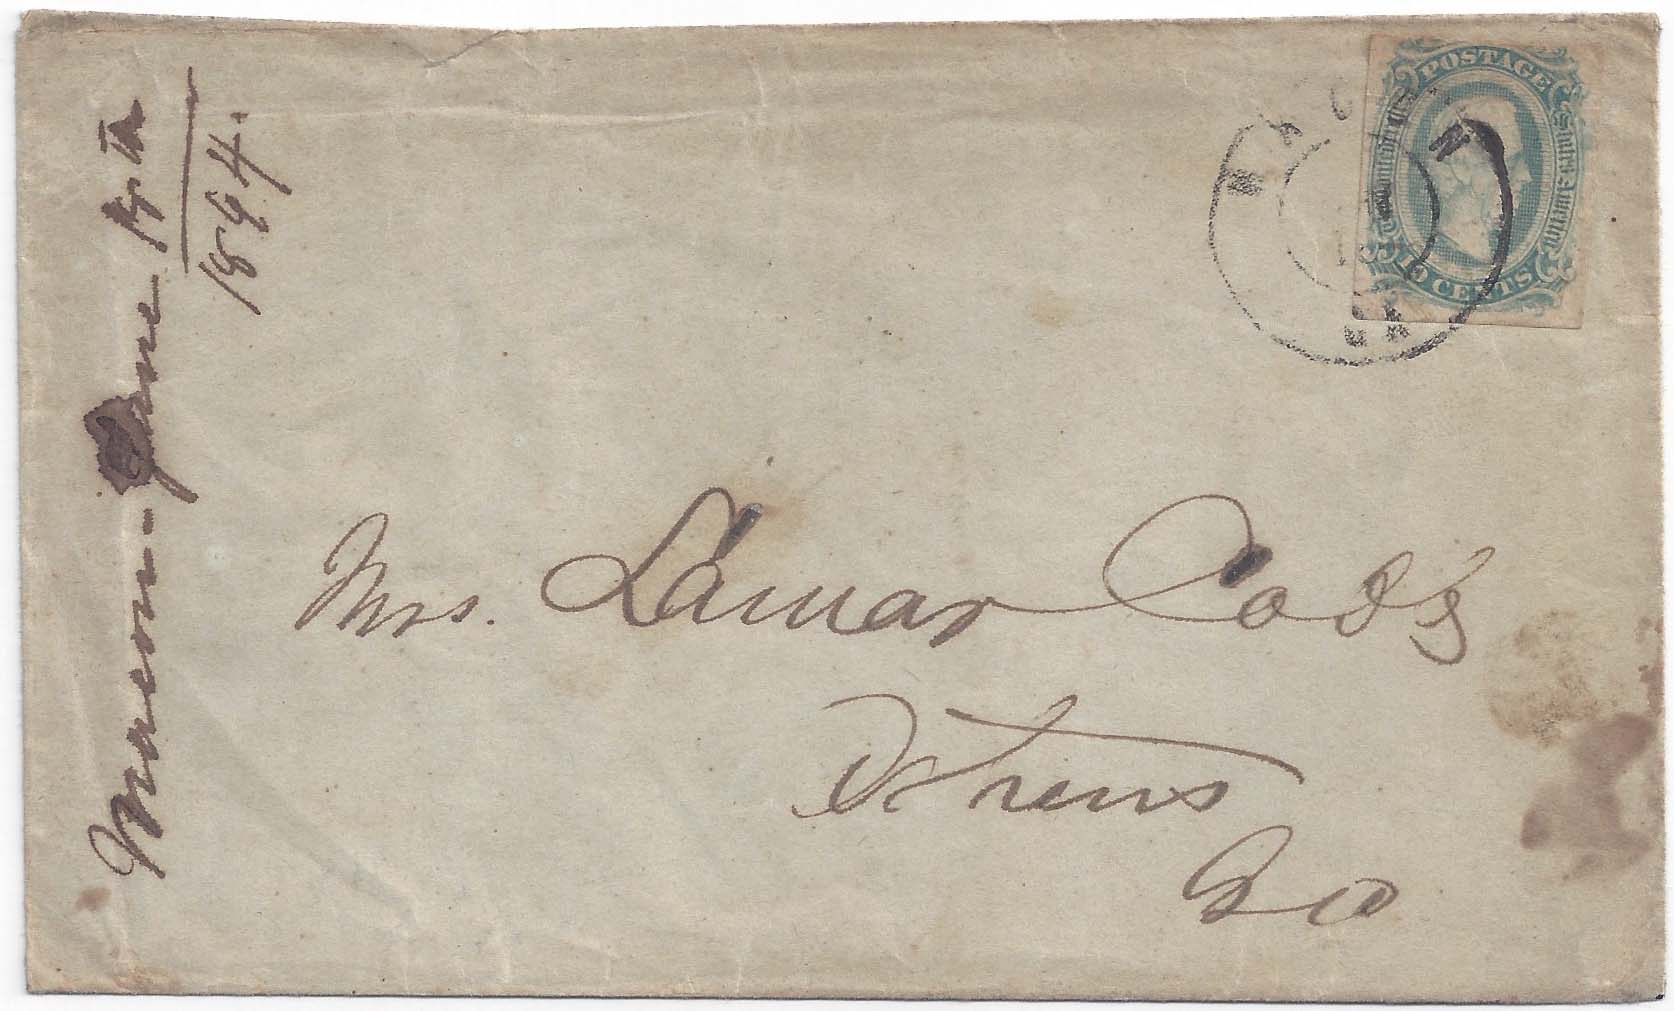 Macon - June 19th
1864.
MACON
GA
POSTAGE
Confederate States of America
10 CENTS
Mrs. Lamar Cobb
Athens
Ga